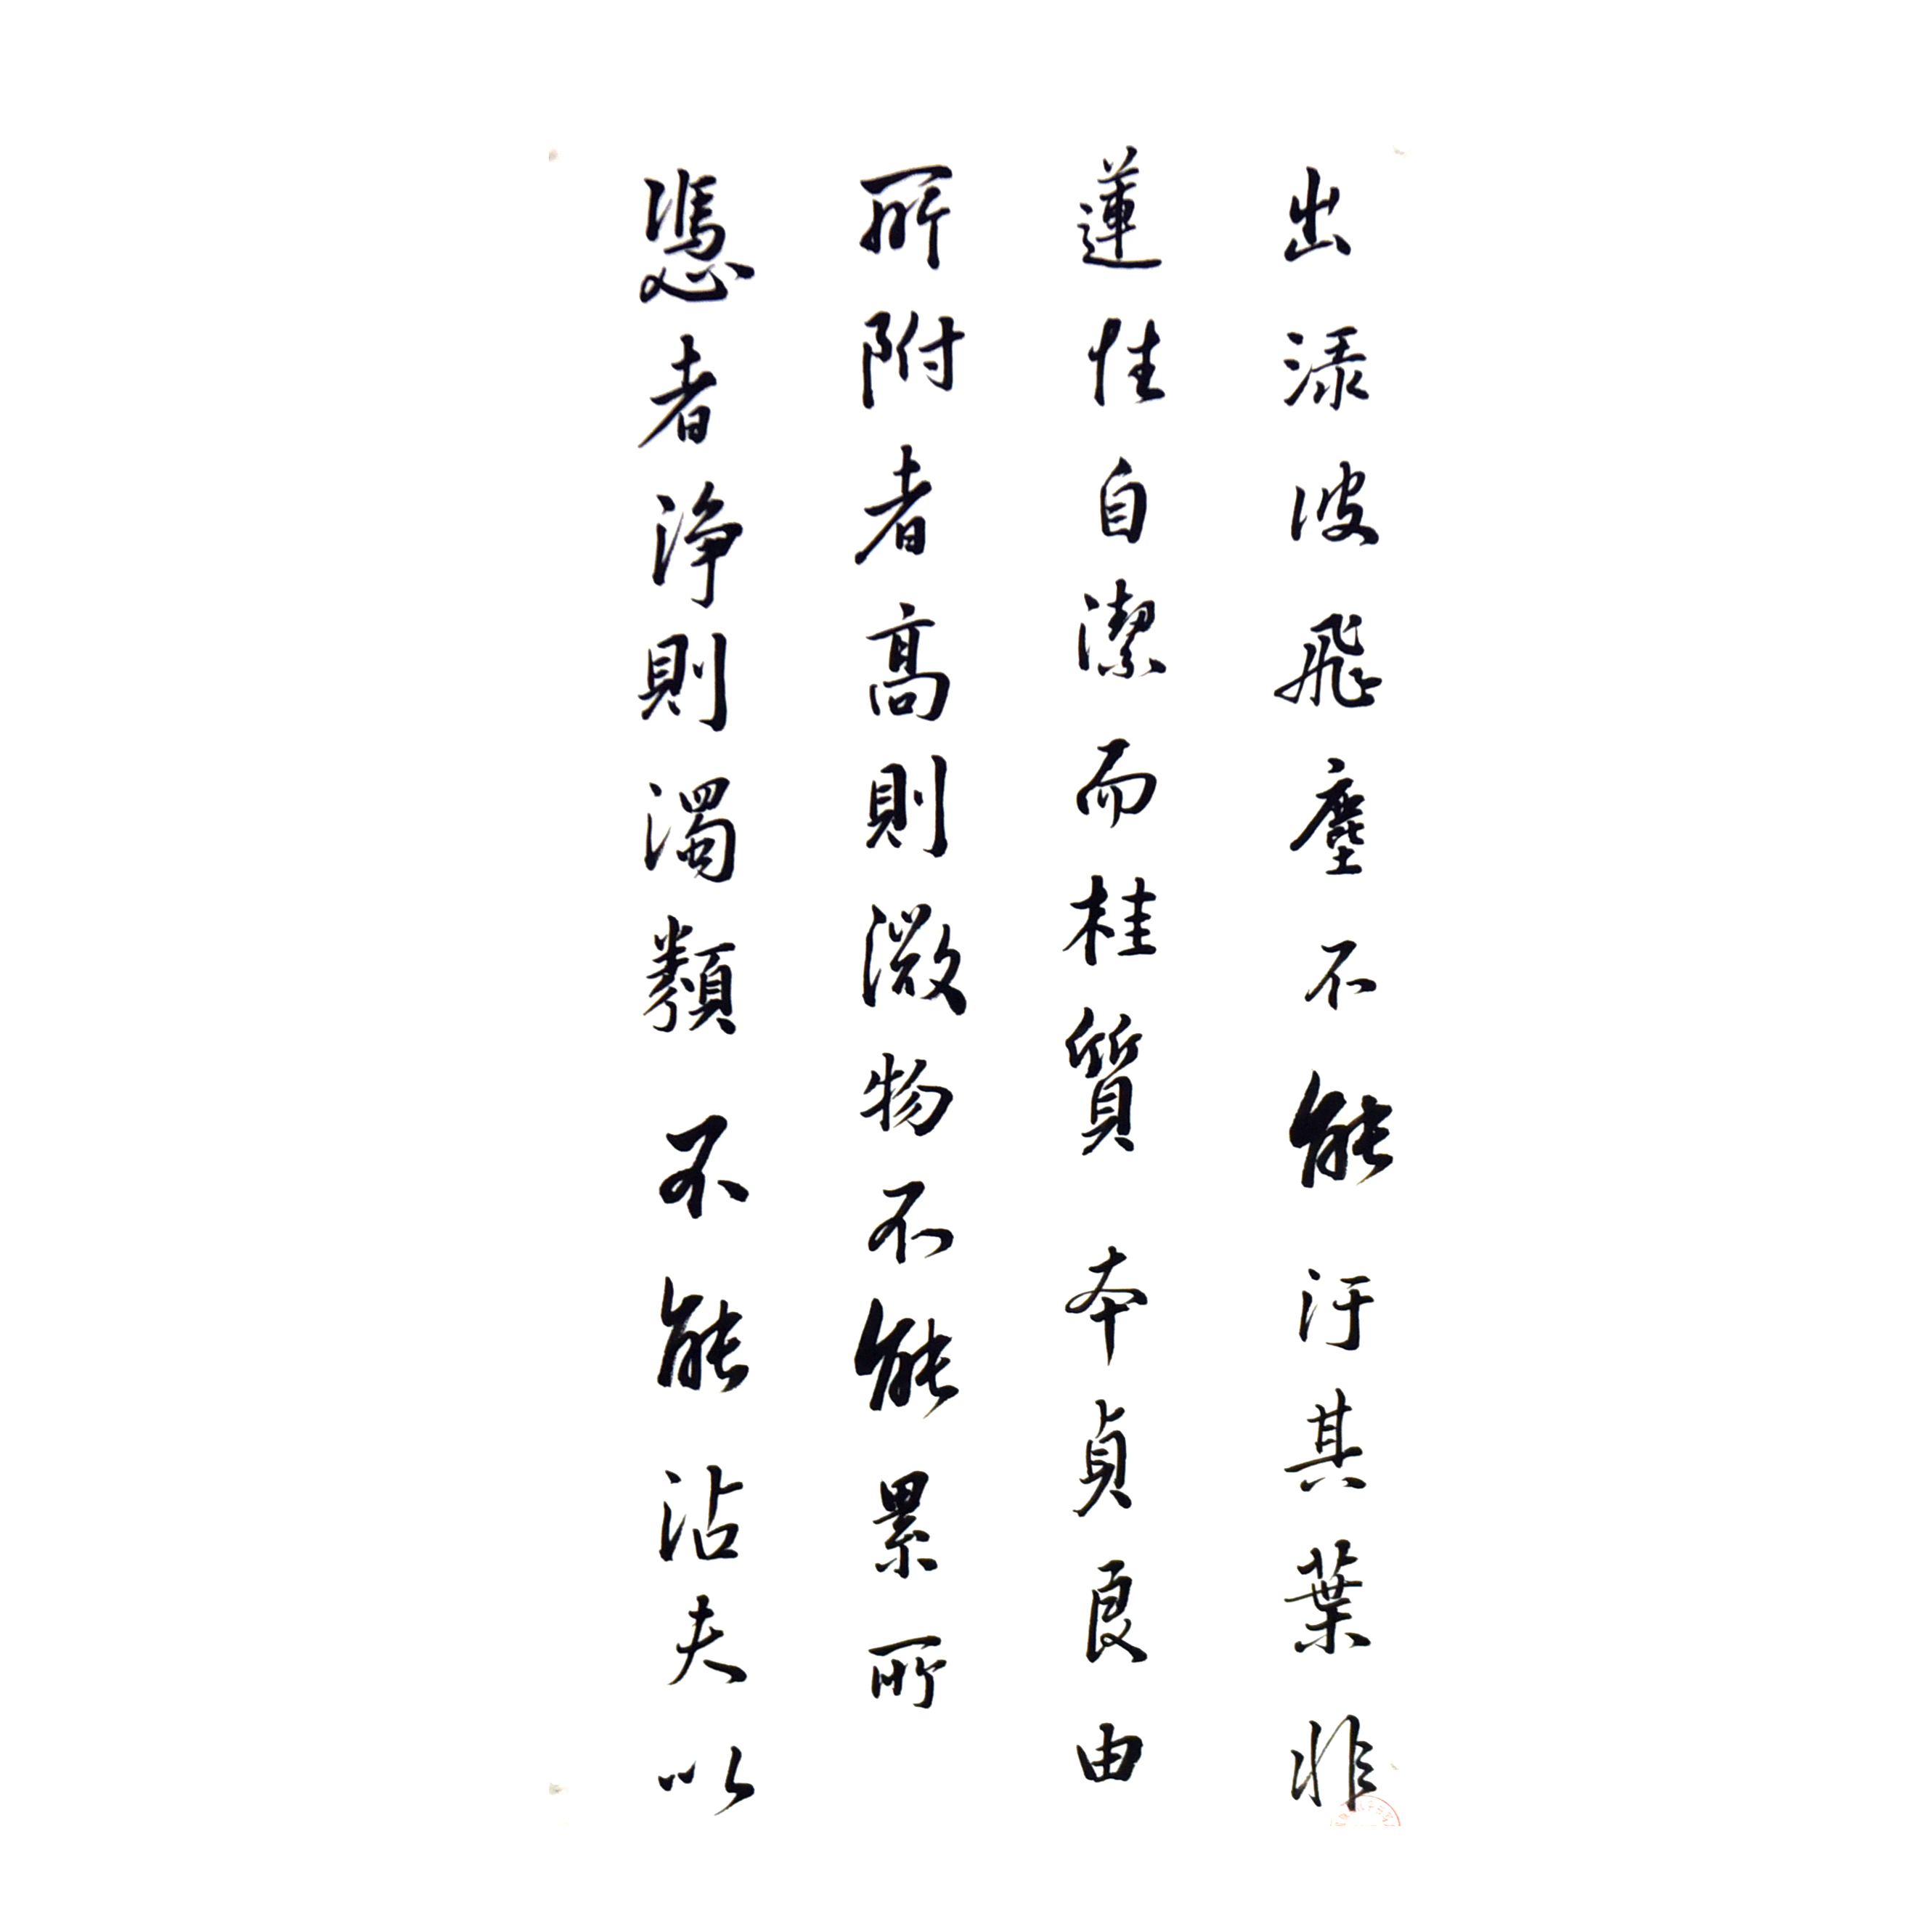 出淥波飛塵不能汙其葉非
蓮性自潔而桂質本貞良由
所附者高則微物不能累所
憑者淨則濁類不能沾夫以